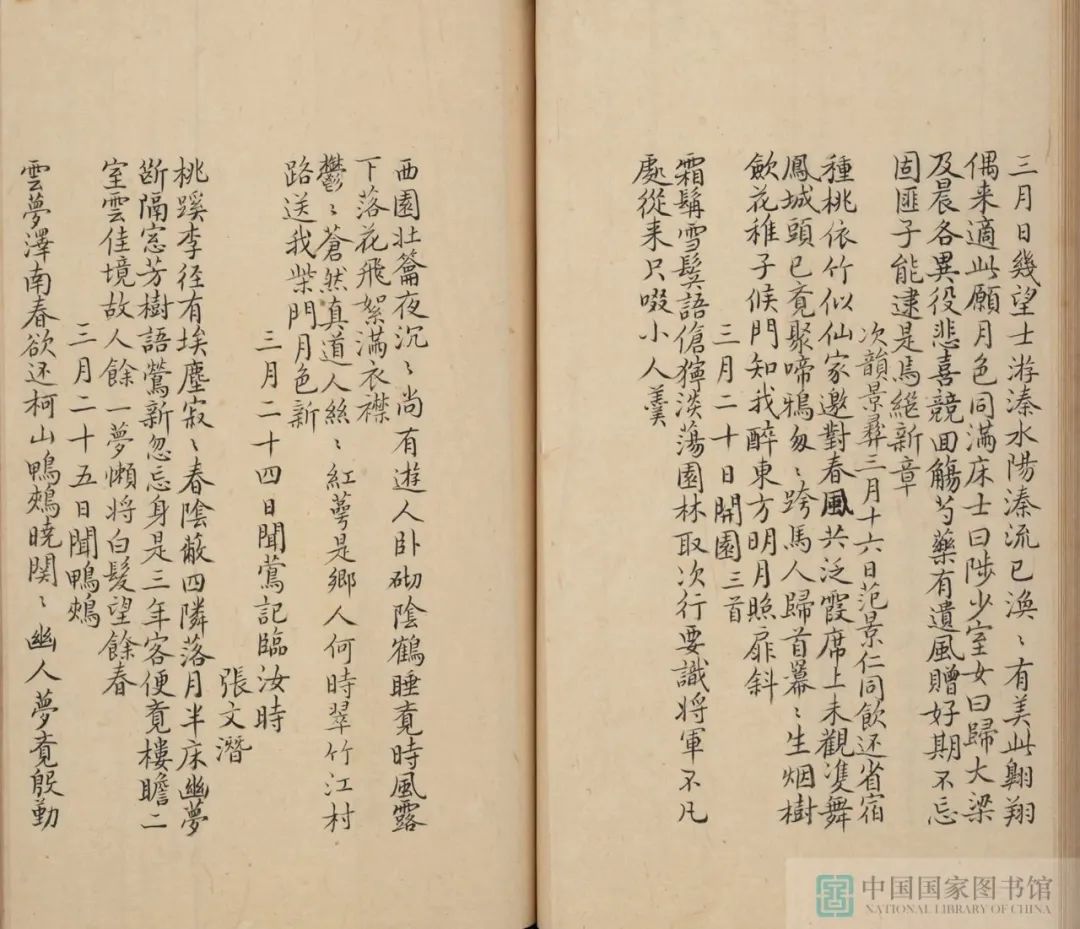 三月日幾望士游溱水陽溱流已渙〻有美此翺翔
偶来適此願月色同滿床士曰陟少室女曰歸大梁
及晨各異役悲喜競回觴芍藥有遺風贈好期不忘
固匪子能逮是焉絕新章
次韻景彝三月十六日范景仁同飲还省宿
種桃依竹似仙家邀對春風共泛霞席上未觀隻舞
鳳城頭已竟聚啼鴉匆〻跨馬人歸首羃〻生烟樹
歛花稚子候門知我醉東方明月照扉斜
三月二十日開園三首
霜髯雪鬂語傖獰淡蕩園林取次行要識将軍不凡
處從来只啜小人羹
西園壯籥夜沉〻尚有遊人卧砌陰鶴睡竟時風露
下落花飛絮滿衣襟
鬱〻蒼然真道人絲〻紅萼是鄉人何時翠竹江村
路送我柴門月色新
三月二十四日聞鶯記臨汝時
張文潛
桃蹊李径有埃塵寂〻春陰蔽四隣落月半床幽夢
斷隔窓芳樹語鶯新忽忘身是三年客便竟樓瞻二
室雲佳境故人餘一夢懶将白髮望餘春
三月二十五日聞鴨鵊
雲夢澤南春欲还柯山鴨鵊曉関〻幽人夢竟殷勤
中国国家图书馆
NATIONAL LIBRARY OF CHINA